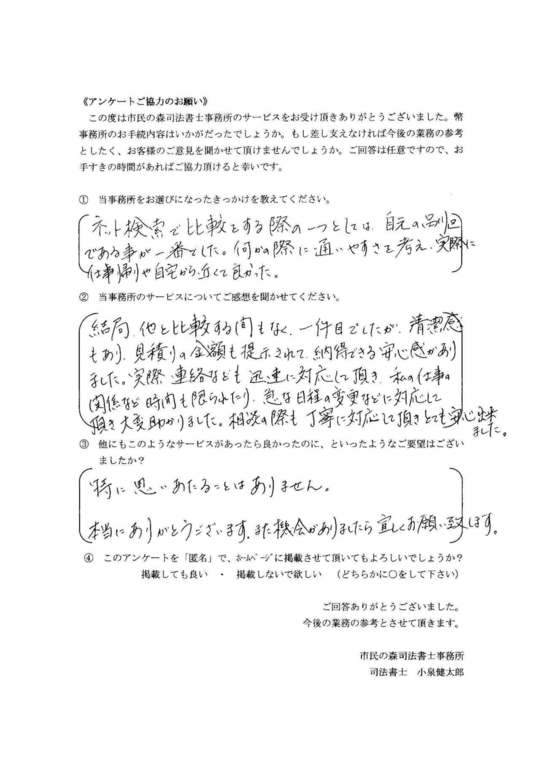 《アンケートご協力のお願い》
この度は市民の森司法書士事務所のサービスをお受け頂きありがとうございました。弊
事務所のお手続内容はいかがだったでしょうか。もし差し支えなければ今後の業務の参考
としたく、お客様のご意見を聞かせて頂けませんでしょうか。ご回答は任意ですので、お
手すきの時間があればご協力頂けると幸いです。
① 当事務所をお選びになったきっかけを教えてください。
ネット検索で比較をする際の一つとしては、自元の品川区
である事が一番でした。何かの際に通いやすさを考え、実際に
仕事帰りや自宅から近くて良かった。
② 当事務所のサービスについてご感想を聞かせてください。
結局、他と比較する間もなく、一件目でしたが、清潔感
もあり、見積りの金額も提示されて、納得できる安心感があり
ました。実際、連絡なども迅速に対応して頂き、私の仕事の
関係など時間も限られたり、急な日程の変更などに対応して
頂き大変助かりました。相談の際も丁寧に対応して頂きとても安心出来
ました。
③ 他にもこのようなサービスがあったら良かったのに、といったようなご要望はござい
ましたか？
特に思いあたることはありません。
本当にありがとうございます。また機会がありましたら宜しくお願い致します。
④ このアンケートを「匿名」で、ﾎｰﾑﾍﾟｰｼﾞに掲載させて頂いてもよろしいでしょうか？
掲載しても良い ・ 掲載しないで欲しい （どちらかに○をして下さい）
ご回答ありがとうございました。
今後の業務の参考とさせて頂きます。
市民の森司法書士事務所
司法書士 小泉健太郎